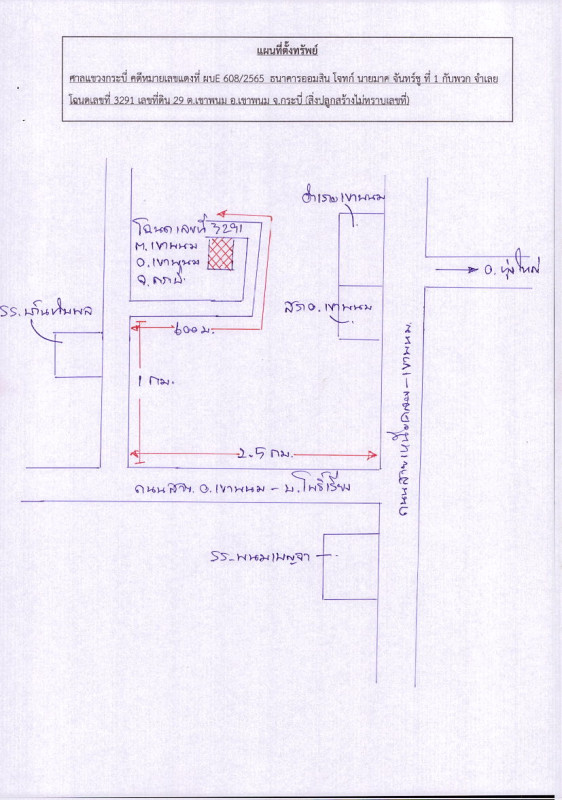 แผนที่ตั้งทรัพย์
ศาลแขวงกระบี่ คดีหมายเลขแดงที่ ผบE 608/2565 ธนาคารออมสิน โจทก์ นายมาค จันทร์ชู ที่ 1 กับพวก จำเลย
โฉนดเลขที่ 3291 เลขที่ดิน 29 ต.เขาพนม อ.เขาพนม จ.กระบี่ (สิ่งปลูกสร้างไม่ทราบเลขที่)
อำเภอเขาพนม
โฉนดเลขที่ 3291
ต.เขาพนม
อ.เขาพนม
จ.กระบี่
อ.ทุ่งใหญ่
สภอ.เขาพนม
600 ม.
1 กม.
2.5 กม.
ถนนสายเหนือคลอง - เขาพนม
ถนนสาย อ.เขาพนม - บ.โพธิ์เรียง
รร.พนมเบญจา